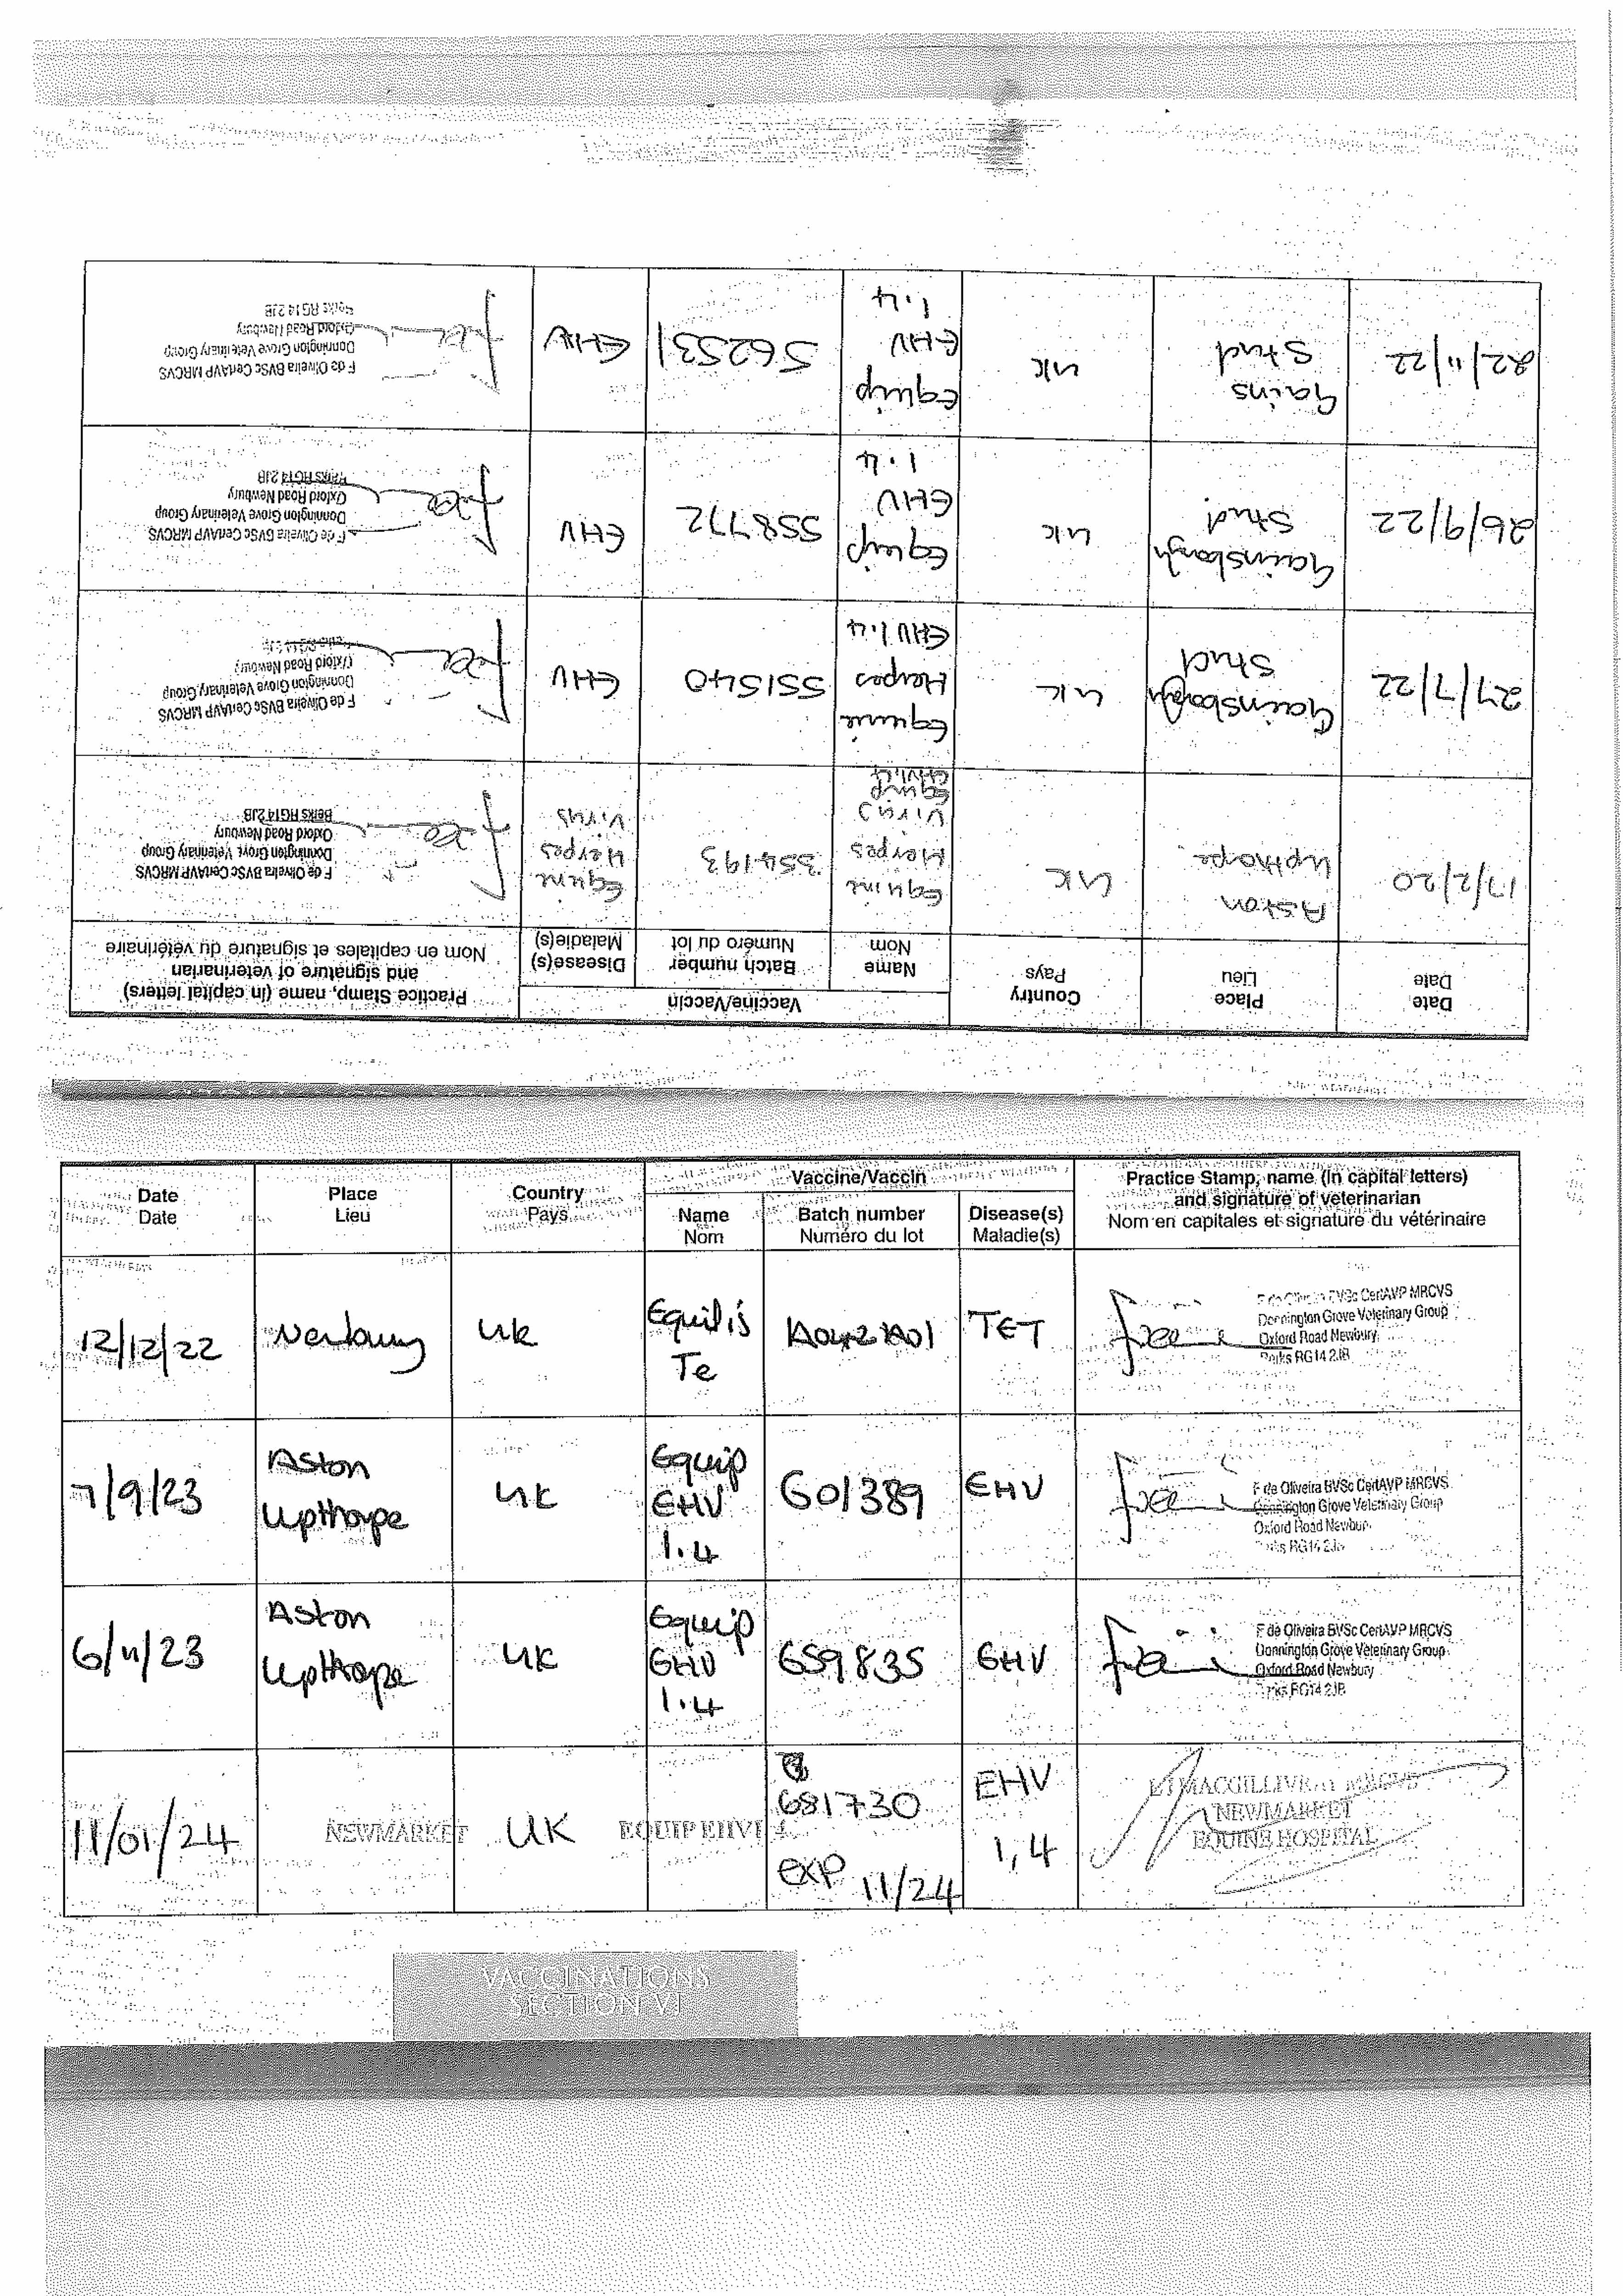 Date
Date
Place
Lieu
Country
Pays
Vaccine/Vaccin
Name
Nom
Batch number
Numéro du lot
Disease(s)
Maladie(s)
Practice Stamp, name (in capital letters)
and signature of veterinarian
Nom en capitales et signature du vétérinaire
17/2/20
Aston
Upthorpe
UK
Equine
Herpes
Virus
Equip
EHV1.4
354193
Equine
Herpes
Virus
F de Oliveira BVSc CertAVP MRCVS
Donnington Grove Veterinary Group
Oxford Road Newbury
Berks RG14 2JB
27/7/22
Gainsborough
Stud
UK
Equine
Herpes
EHV1.4
551540
EHV
F de Oliveira BVSc CertAVP MRCVS
Donnington Grove Veterinary Group
Oxford Road Newbury
26/9/22
Gainsborough
Stud
UK
Equip
EHV
1.4
558772
EHV
F de Oliveira BVSc CertAVP MRCVS
Donnington Grove Veterinary Group
Oxford Road Newbury
Berks RG14 2JB
22/11/22
Gains
Stud
UK
Equip
EHV
1.4
562531
EHV
F de Oliveira BVSc CertAVP MRCVS
Donnington Grove Veterinary Group
Oxford Road Newbury
Berks RG14 2JB
Date
Date
Place
Lieu
Country
Pays
Vaccine/Vaccin
Name
Nom
Batch number
Numéro du lot
Disease(s)
Maladie(s)
Practice Stamp, name (in capital letters)
and signature of veterinarian
Nom en capitales et signature du vétérinaire
12/12/22
Newbury
UK
Equilis
Te
A042A01
TET
F de Oliveira BVSc CertAVP MRCVS
Donnington Grove Veterinary Group
Oxford Road Newbury
Berks RG14 2JB
7/9/23
Aston
Upthorpe
UK
Equip
EHV
1.4
601389
EHV
F de Oliveira BVSc CertAVP MRCVS
Donnington Grove Veterinary Group
Oxford Road Newbury
Berks RG14 2JB
6/11/23
Aston
Upthorpe
UK
Equip
EHV
1.4
659835
EHV
F de Oliveira BVSc CertAVP MRCVS
Donnington Grove Veterinary Group
Oxford Road Newbury
Berks RG14 2JB
11/01/24
NEWMARKET
UK
EQUIP EHV1 4
681730
exp 11/24
EHV
1,4
MACGILLIVRAY MRCVS
NEWMARKET
EQUINE HOSPITAL
VACCINATIONS
SECTION VI